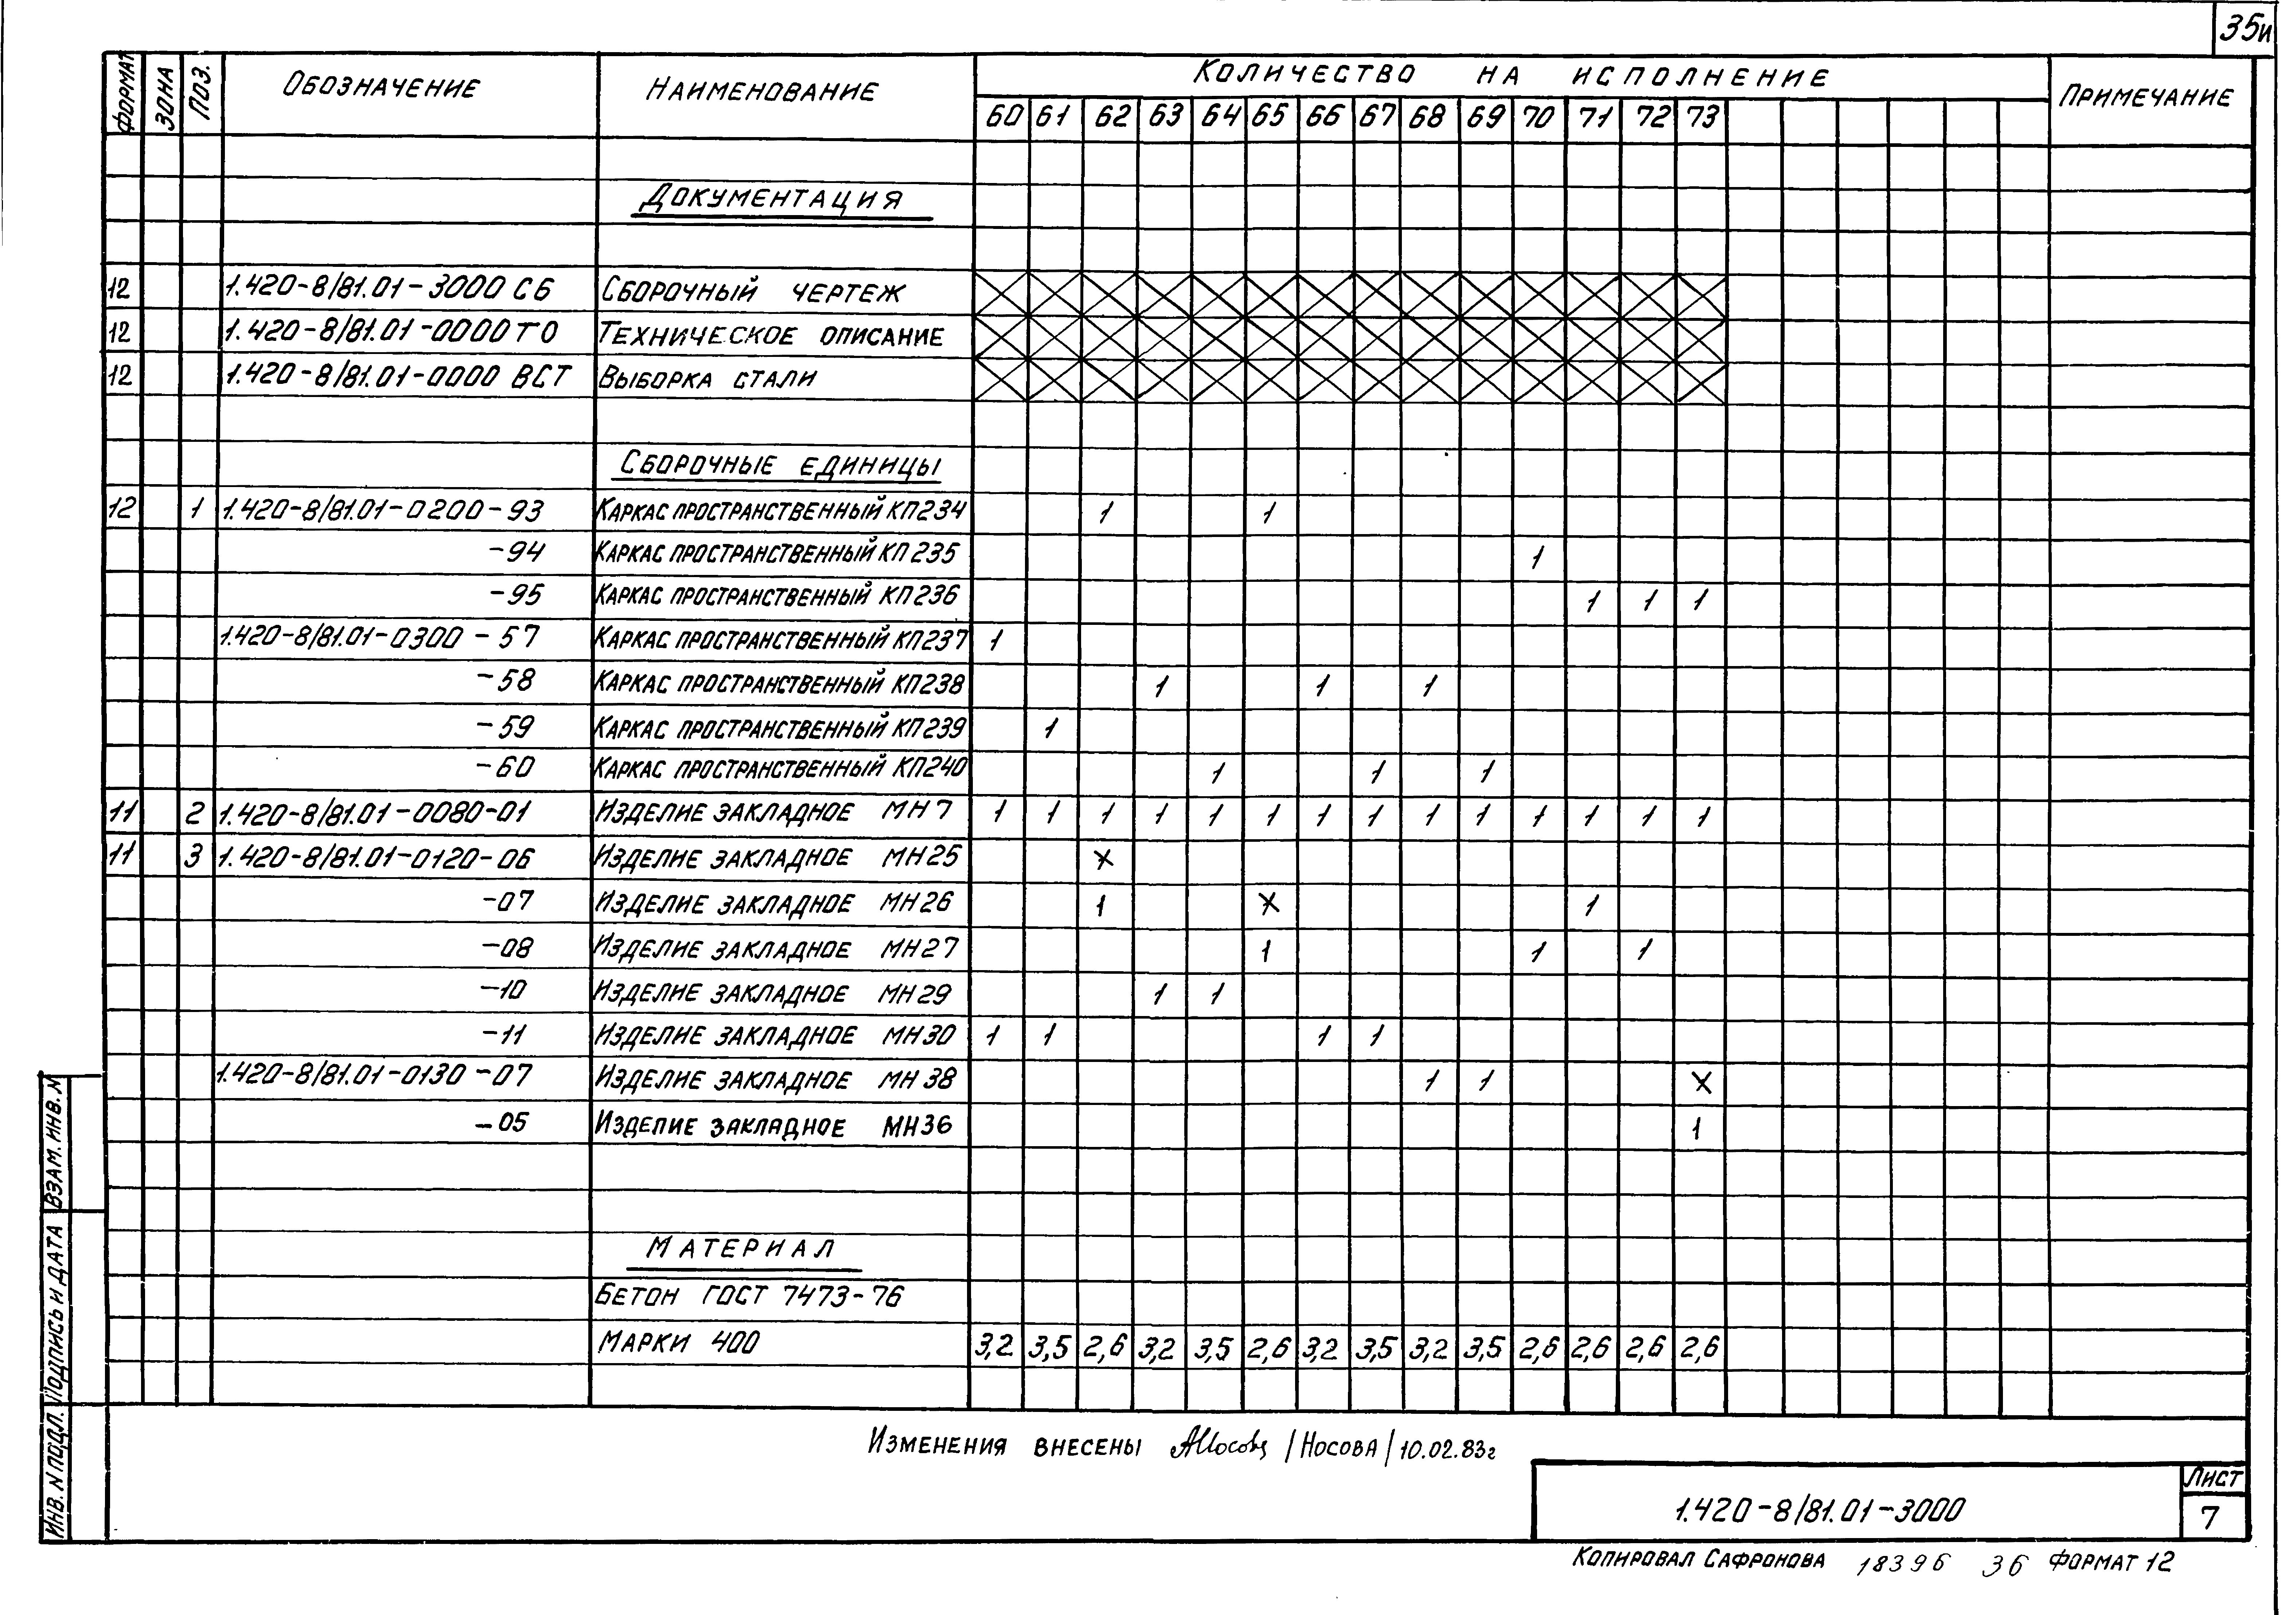 35и
ФОРМАТ ЗОНА ПОЗ. ОБОЗНАЧЕНИЕ НАИМЕНОВАНИЕ КОЛИЧЕСТВО НА ИСПОЛНЕНИЕ ПРИМЕЧАНИЕ
60 61 62 63 64 65 66 67 68 69 70 71 72 73
ДОКУМЕНТАЦИЯ
12 1.420-8/81.01-3000 СБ СБОРОЧНЫЙ ЧЕРТЕЖ
12 1.420-8/81.01-0000 ТО ТЕХНИЧЕСКОЕ ОПИСАНИЕ
12 1.420-8/81.01-0000 ВСТ ВЫБОРКА СТАЛИ
СБОРОЧНЫЕ ЕДИНИЦЫ
12 1 1.420-8/81.01-0200-93 КАРКАС ПРОСТРАНСТВЕННЫЙ КП234 1 1
-94 КАРКАС ПРОСТРАНСТВЕННЫЙ КП235 1
-95 КАРКАС ПРОСТРАНСТВЕННЫЙ КП236 1 1 1
1.420-8/81.01-0300-57 КАРКАС ПРОСТРАНСТВЕННЫЙ КП237 1
-58 КАРКАС ПРОСТРАНСТВЕННЫЙ КП238 1 1 1
-59 КАРКАС ПРОСТРАНСТВЕННЫЙ КП239 1
-60 КАРКАС ПРОСТРАНСТВЕННЫЙ КП240 1 1 1
11 2 1.420-8/81.01-0080-01 ИЗДЕЛИЕ ЗАКЛАДНОЕ МН7 1 1 1 1 1 1 1 1 1 1 1 1 1 1
11 3 1.420-8/81.01-0120-06 ИЗДЕЛИЕ ЗАКЛАДНОЕ МН25 X
-07 ИЗДЕЛИЕ ЗАКЛАДНОЕ МН26 1 X 1
-08 ИЗДЕЛИЕ ЗАКЛАДНОЕ МН27 1 1 1
-10 ИЗДЕЛИЕ ЗАКЛАДНОЕ МН29 1 1
-11 ИЗДЕЛИЕ ЗАКЛАДНОЕ МН30 1 1 1 1
1.420-8/81.01-0130-07 ИЗДЕЛИЕ ЗАКЛАДНОЕ МН38 1 1 X
-05 ИЗДЕЛИЕ ЗАКЛАДНОЕ МН36 1
МАТЕРИАЛ
БЕТОН ГОСТ 7473-76
МАРКИ 400 3,2 3,5 2,6 3,2 3,5 2,6 3,2 3,5 3,2 3,5 2,6 2,6 2,6 2,6
ВЗАМ. ИНВ. N
ПОДПИСЬ И ДАТА
ИНВ. N ПОДЛ.
ИЗМЕНЕНИЯ ВНЕСЕНЫ /НОСОВА/ 10.02.83г
1.420-8/81.01-3000
ЛИСТ
7
КОПИРОВАЛ САФРОНОВА 18396 36 ФОРМАТ 12